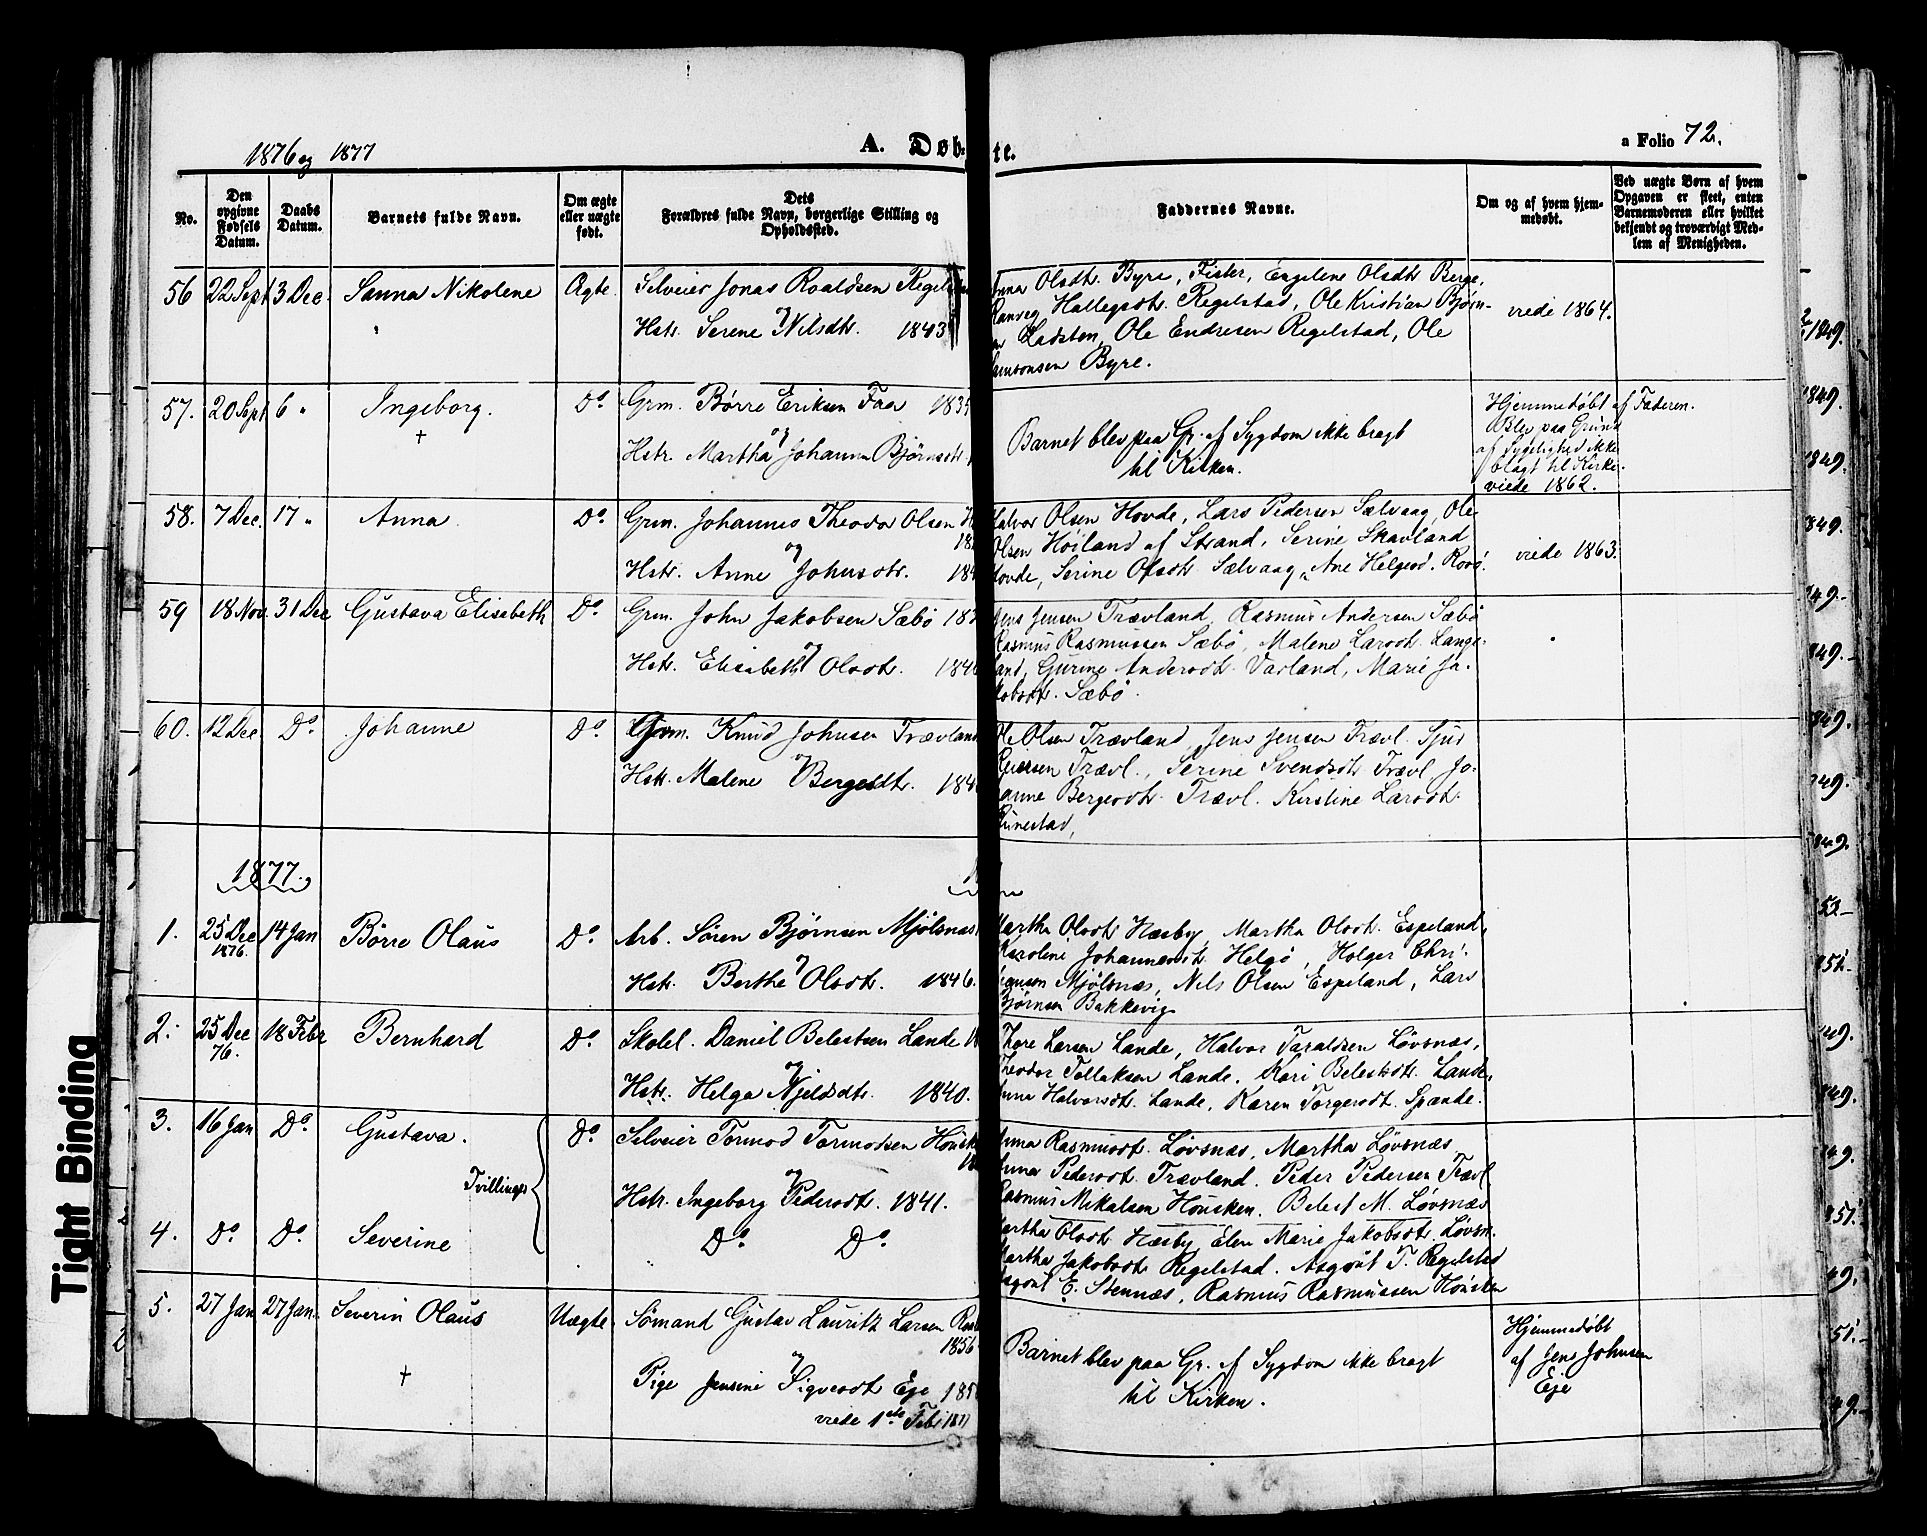 1876 og 1877
A. Døbte.
a Folio 72.
No.
Den opgivne Fødsels Datum.
Daabs Datum.
Barnets fulde Navn.
Om ægte eller uægte født.
Dets Forældres fulde Navn, borgerlige Stilling og Opholdssted.
Faddernes Navne.
Om og af hvem hjemmedøbt.
Ved uægte Børn af hvem Opgaven er skeet, enten Barnemoderen eller hvilket bekjendt og troværdigt Medlem af Menigheden.
56 22 Sept 3 Dec. Sanna Nikolene Ægte. Selveier Jonas Roaldsen
og
Hstr. Serene Nilsdtr. 1843
Olsdtr. Byre, Fister, Engelene Olsdtr. Berge,
Hallegsdtr. Regelstad, Ole Kristian Bjørn-
Ladsten, Ole Endresen Regelstad, Ole
Byre.
viede 1864.
57. 20 Sept 6 " Ingeborg. Do Grm. Børre Eriksen Faa
†
og
Hstr. Martha Johanna Bjørnsdtr.
Barnet blev paa Gr. af Sygdom ikke bragt
til Kirken.
Hjemmedøbt af Faderen.
Blev paa Grund
af Sygelighed ikke
bragt til Kirke.
viede 1862.
58. 7 Dec. 17 " Anna. Do Grm. Johannes Theodor Olsen
og
Hstr. Anne Johnsdtr.
Halvor Olsen Hovde, Lars Pedersen Sælvaag, Ole
Olsen Høiland af Strand, Serine Skavland
Hovde, Serine Olsdtr Sælvaag, Ane Helgesd.
viede 1863.
59 18 Nov. 31 Dec Gustava Elisabeth Do Grm. John Jakobsen Sæbø
og
Hstr. Elisabeth Olsdtr.
Jens Jensen Trævland, Rasmus Andersen Sæbø
Rasmus Rasmussen Sæbø, Malene Larsdtr. Lange-
land, Gurine Andersdtr. Varland, Marie Ja-
kobsdtr. Sæbø.
60. 12 Dec. Do Johanne Do Grm. Knud Johnsen Trævland
og
Hstr. Malene Bergesdtr.
Ole Olsen Trævland, Jens Jensen Trævl. Sjur
Trævl., Serine Svendsdtr Trævl. Jo-
hanne Bergesdtr. Trævl. Kirstine Larsdtr.
1877.
1. 25 Dec 1876. 14 Jan Børre Olaus Do. Arb. Søren Bjørnsen Mjølsnæs
og
Hstr. Berthe Olsdtr. 1846.
Martha Olsdtr Næsby, Martha Olsdtr. Espeland,
Karoline Johannesdtr. Helgø, Holger Chri-
Mjølsnæs, Nils Olsen Espeland, Lars
Bjørnsen Bakkevig
2. 25 Dec 76. 18 Febr Bernhard Do. Skolel. Daniel Belestsen Lande
og
Hstr. Helga Njeldsdtr. 1840.
Tore Larsen Lande, Halvor Taraldsen Løvsnæs,
Theodor Tollaksen Lande. Kari Belestsdtr. Lande,
Halvorsdtr. Lande, Karen Torgersdtr. Spande.
3. 16 Jan Do. Gustava. Do Selveier Tormod Tormodsen
Tvillinger
og
Hstr. Ingeborg Pedersdtr. 1841.
Anna Rasmusdtr. Løvsnæs, Martha Løvsnæs
Anna Pedersdtr. Trævland. Peder Pedersen Trævl
Rasmus Mikalsen Housken. Belest M. Løvsnæs
4. Do. Do. Severine Do Do.
Martha Olsdtr Næsby, Elen Marie Jakobsdtr. Løvsn.
Martha Jakobsdtr Regelstad. Asgout T. Regelstad
Asgout E. Stennæs, Rasmus Rasmussen Housken
5. 27 Jan 27 Jan. Severin Olaus Uægte Sømand Gustav Lauritz Larsen
1856
†
og
Pige Jensine Sigvesdtr Eje
viede 1ste Feb. 1877
Barnet blev paa Gr. af Sygdom ikke bragt
til Kirken.
Hjemmedøbt
af Jens Johnsen
Eje
Tight Binding